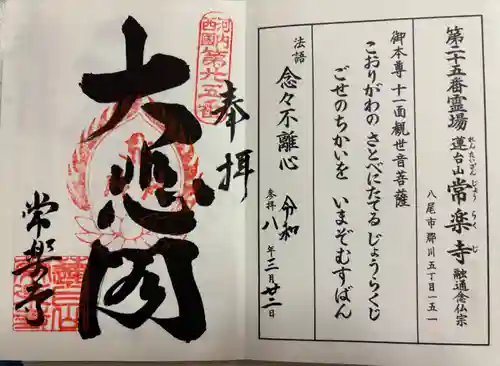 第二十五番霊場
蓮台山 常楽寺 融通念仏宗
れんたいざん じょうらくじ
八尾市郡川五丁目一五一
御本尊 十一面観世音菩薩
こおりがわの さとべにたてる じょうらくじ
ごせのちかいを いまぞむすばん
法語 念々不離心
参拝 令和八年三月廿二日
河内
西國
第廿五番
奉拝
大悲閣
常楽寺